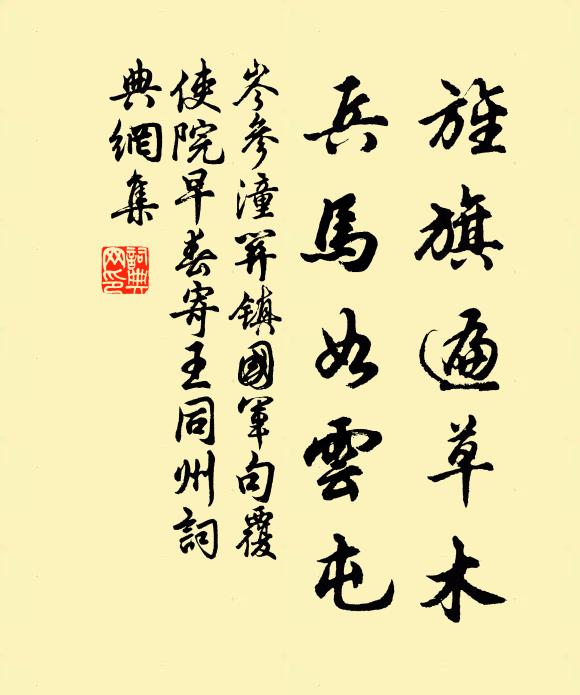 旌旗遍草木
兵馬如雲屯
岑參潼關鎮國軍句覆
使院早春寄王同州詞
典網集
詞典網印